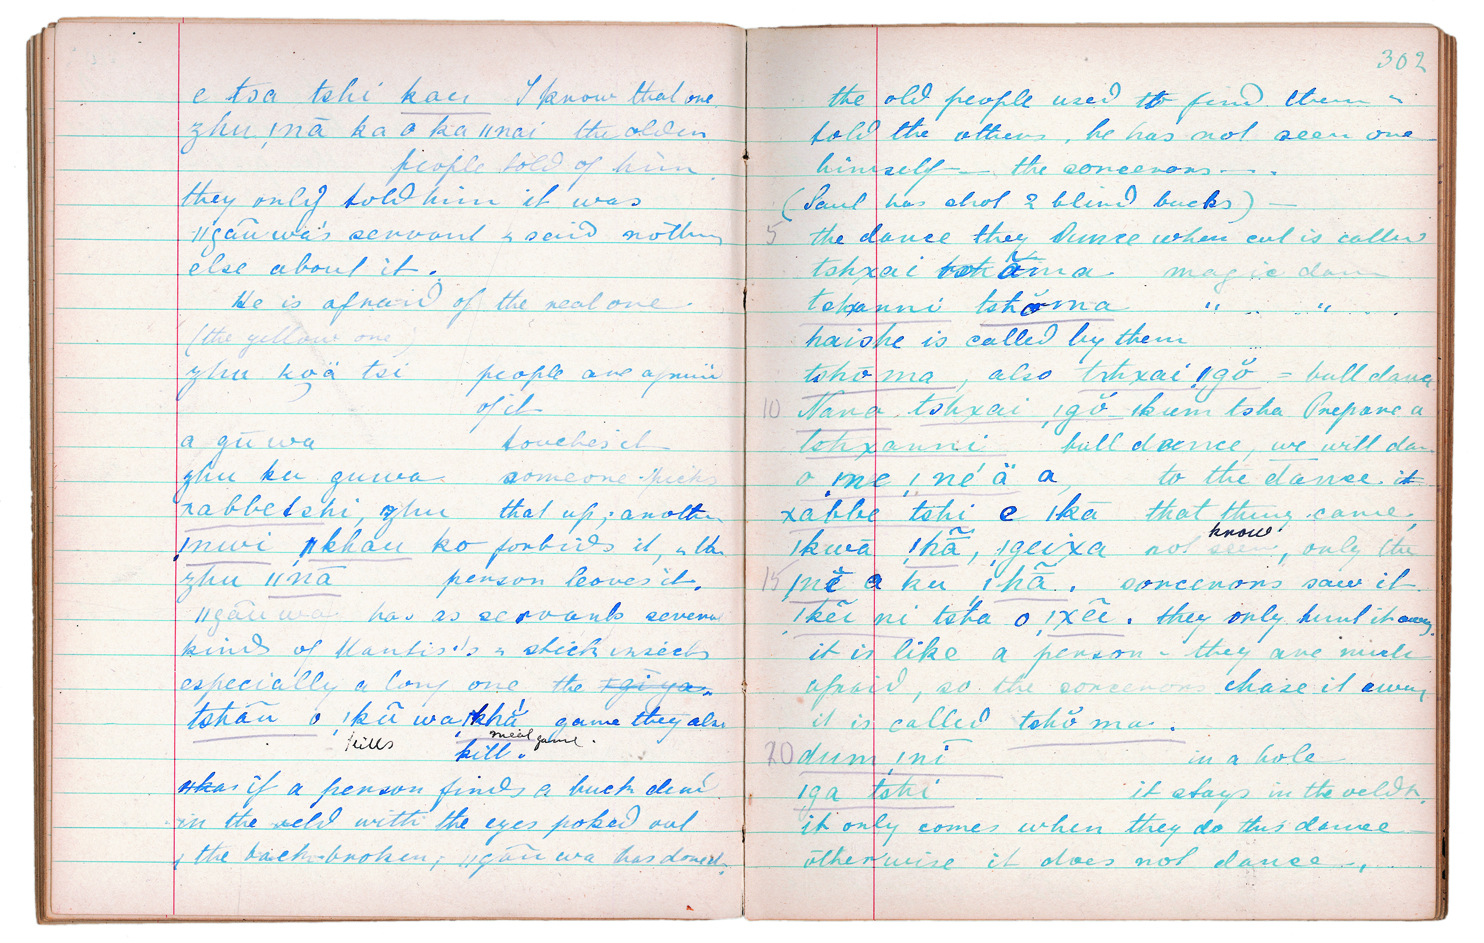 e tsa tshi kau I know that one
zhu ǀnā ka o ka ǁnai the olden
people told of him
they only told him it was
ǁgãuwa's servant & said nothing
else about it.
He is afraid of the real one.
(the yellow one)
zhu koä tsi people are afraid
of it
a gūwa touches it
zhu ku guwa someone picks
xabbe tshi, zhu that up; another
ǀnwi ǁkhau ko forbids it, & the
zhu ǁnā person leaves it.
ǁgãuwa has as servants several
kinds of Mantis's & stick insects
especially a long one the
tshãu o ǀkũ wa ǀkhā game they also
kills meat game.
kill.
if a person finds a buck dead
in the veld with the eyes poked out
& the back broken, ǁgãuwa has done it.
302
the old people used to find them &
told the others, he has not seen one
himself — the sorcerors —.
(Saul has shot 2 blind bucks) —
5 the dance they dance when cul is called
tshxai tshõma magic dance
tshxanni tshõma " "
haishe is called by them
tshoma, also tshxai ǀgŏ = bull dance
10 Nana tshxai ǀgŏ ǀkum tsha Prepare a
tshxanni bull dance, we will dance
o ǀne ǀné ä a, to the dance it
xabbe tshi e ǀka that thing came,
ǀkwã ǀhã, ǀgeixa not know, only the
15 ǀnĕ a ku ǀhã. sorcerors saw it
ǀkẽi ni tsha o ǀxẽi. they only hunt it away.
it is like a person - they are much
afraid, so the sorcerors chase it away
it is called tshŏma.
20 dum ǀni in a hole
ǀga tshi it stays in the veldt,
it only comes when they do this dance —
otherwise it does not dance —.